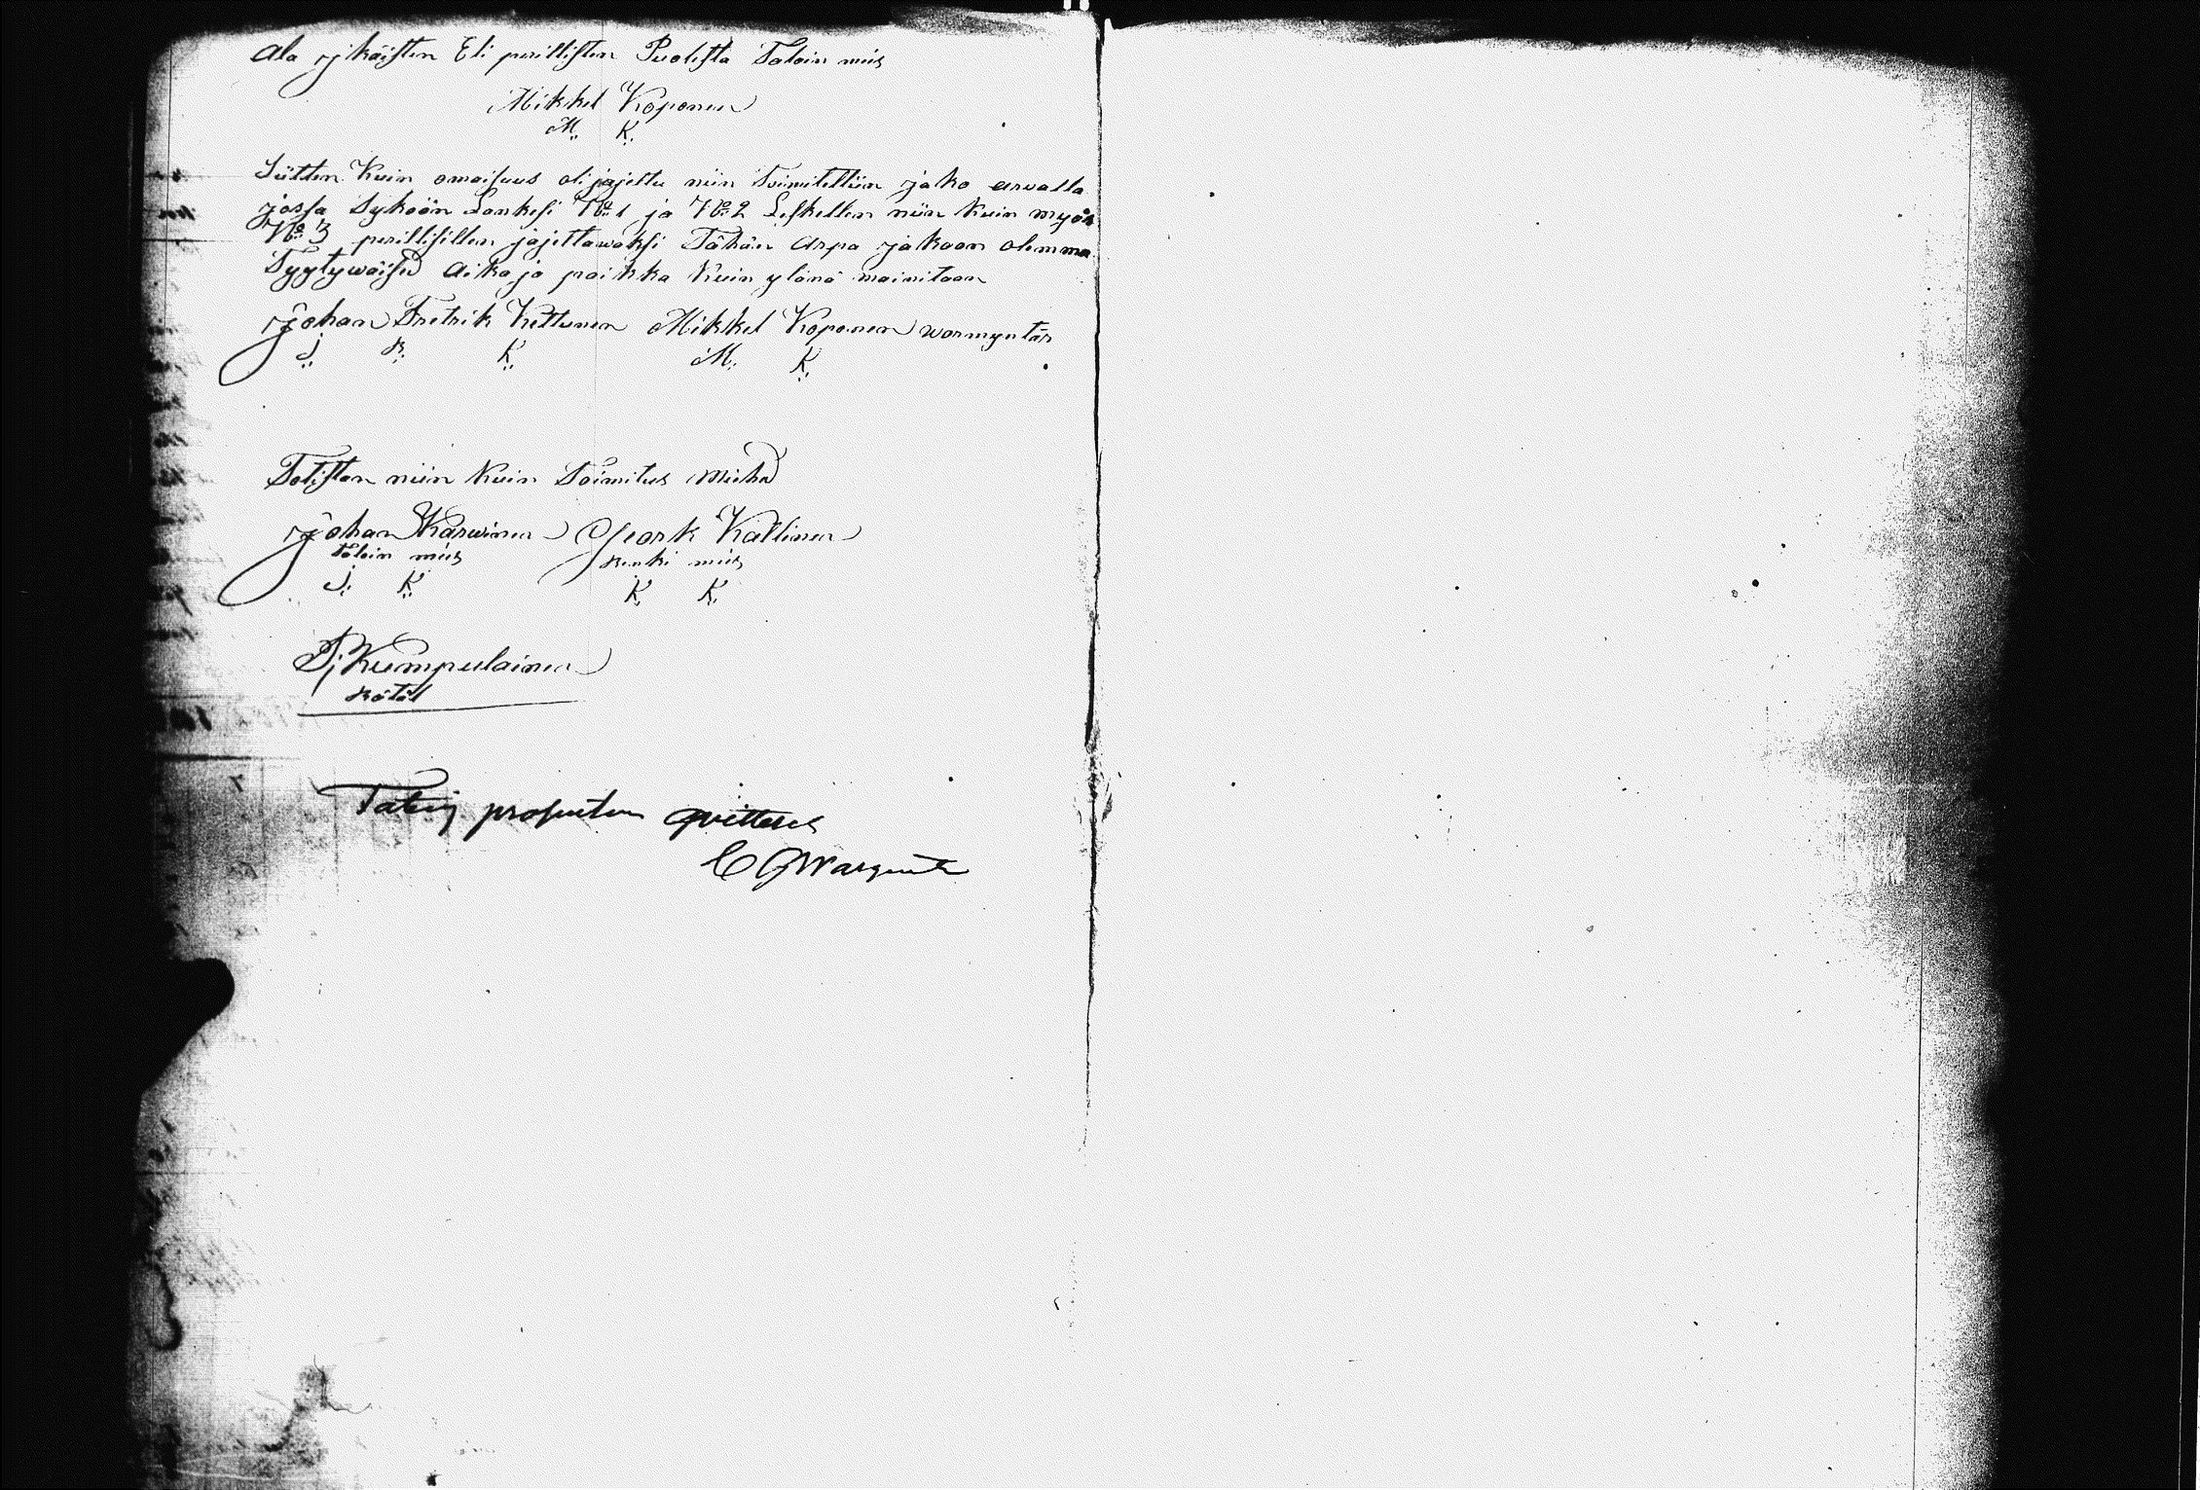 Ala ijkäisten Eli perillisten Puolesta Taloin mies
Mikkel Koponen
M. K.
Siitten Kuin omaisuus oli jajettu niin Toimitettiin jako arvalla
jossa Syksön Lankesi No 1 ja No 2 Leskellen niin kuin myös
No 3 perillisillen jajettawaksi Tähän arpa jakoon olemma
Tyytywäised Aika ja paikka kuin ylänä mainitaan
Johan Fretrik Kettunen Mikkel Koponen wormyntär
J. R. K. M. K.
Totistan niin kuin Toimitus Miehed
Johan Karwinen Jeork Kallinen
Taloin mies Renki mies
J. K. K. K.
P. Kumpulainen
Rätäl
Fattig procenten qvitteras
C G Wargent